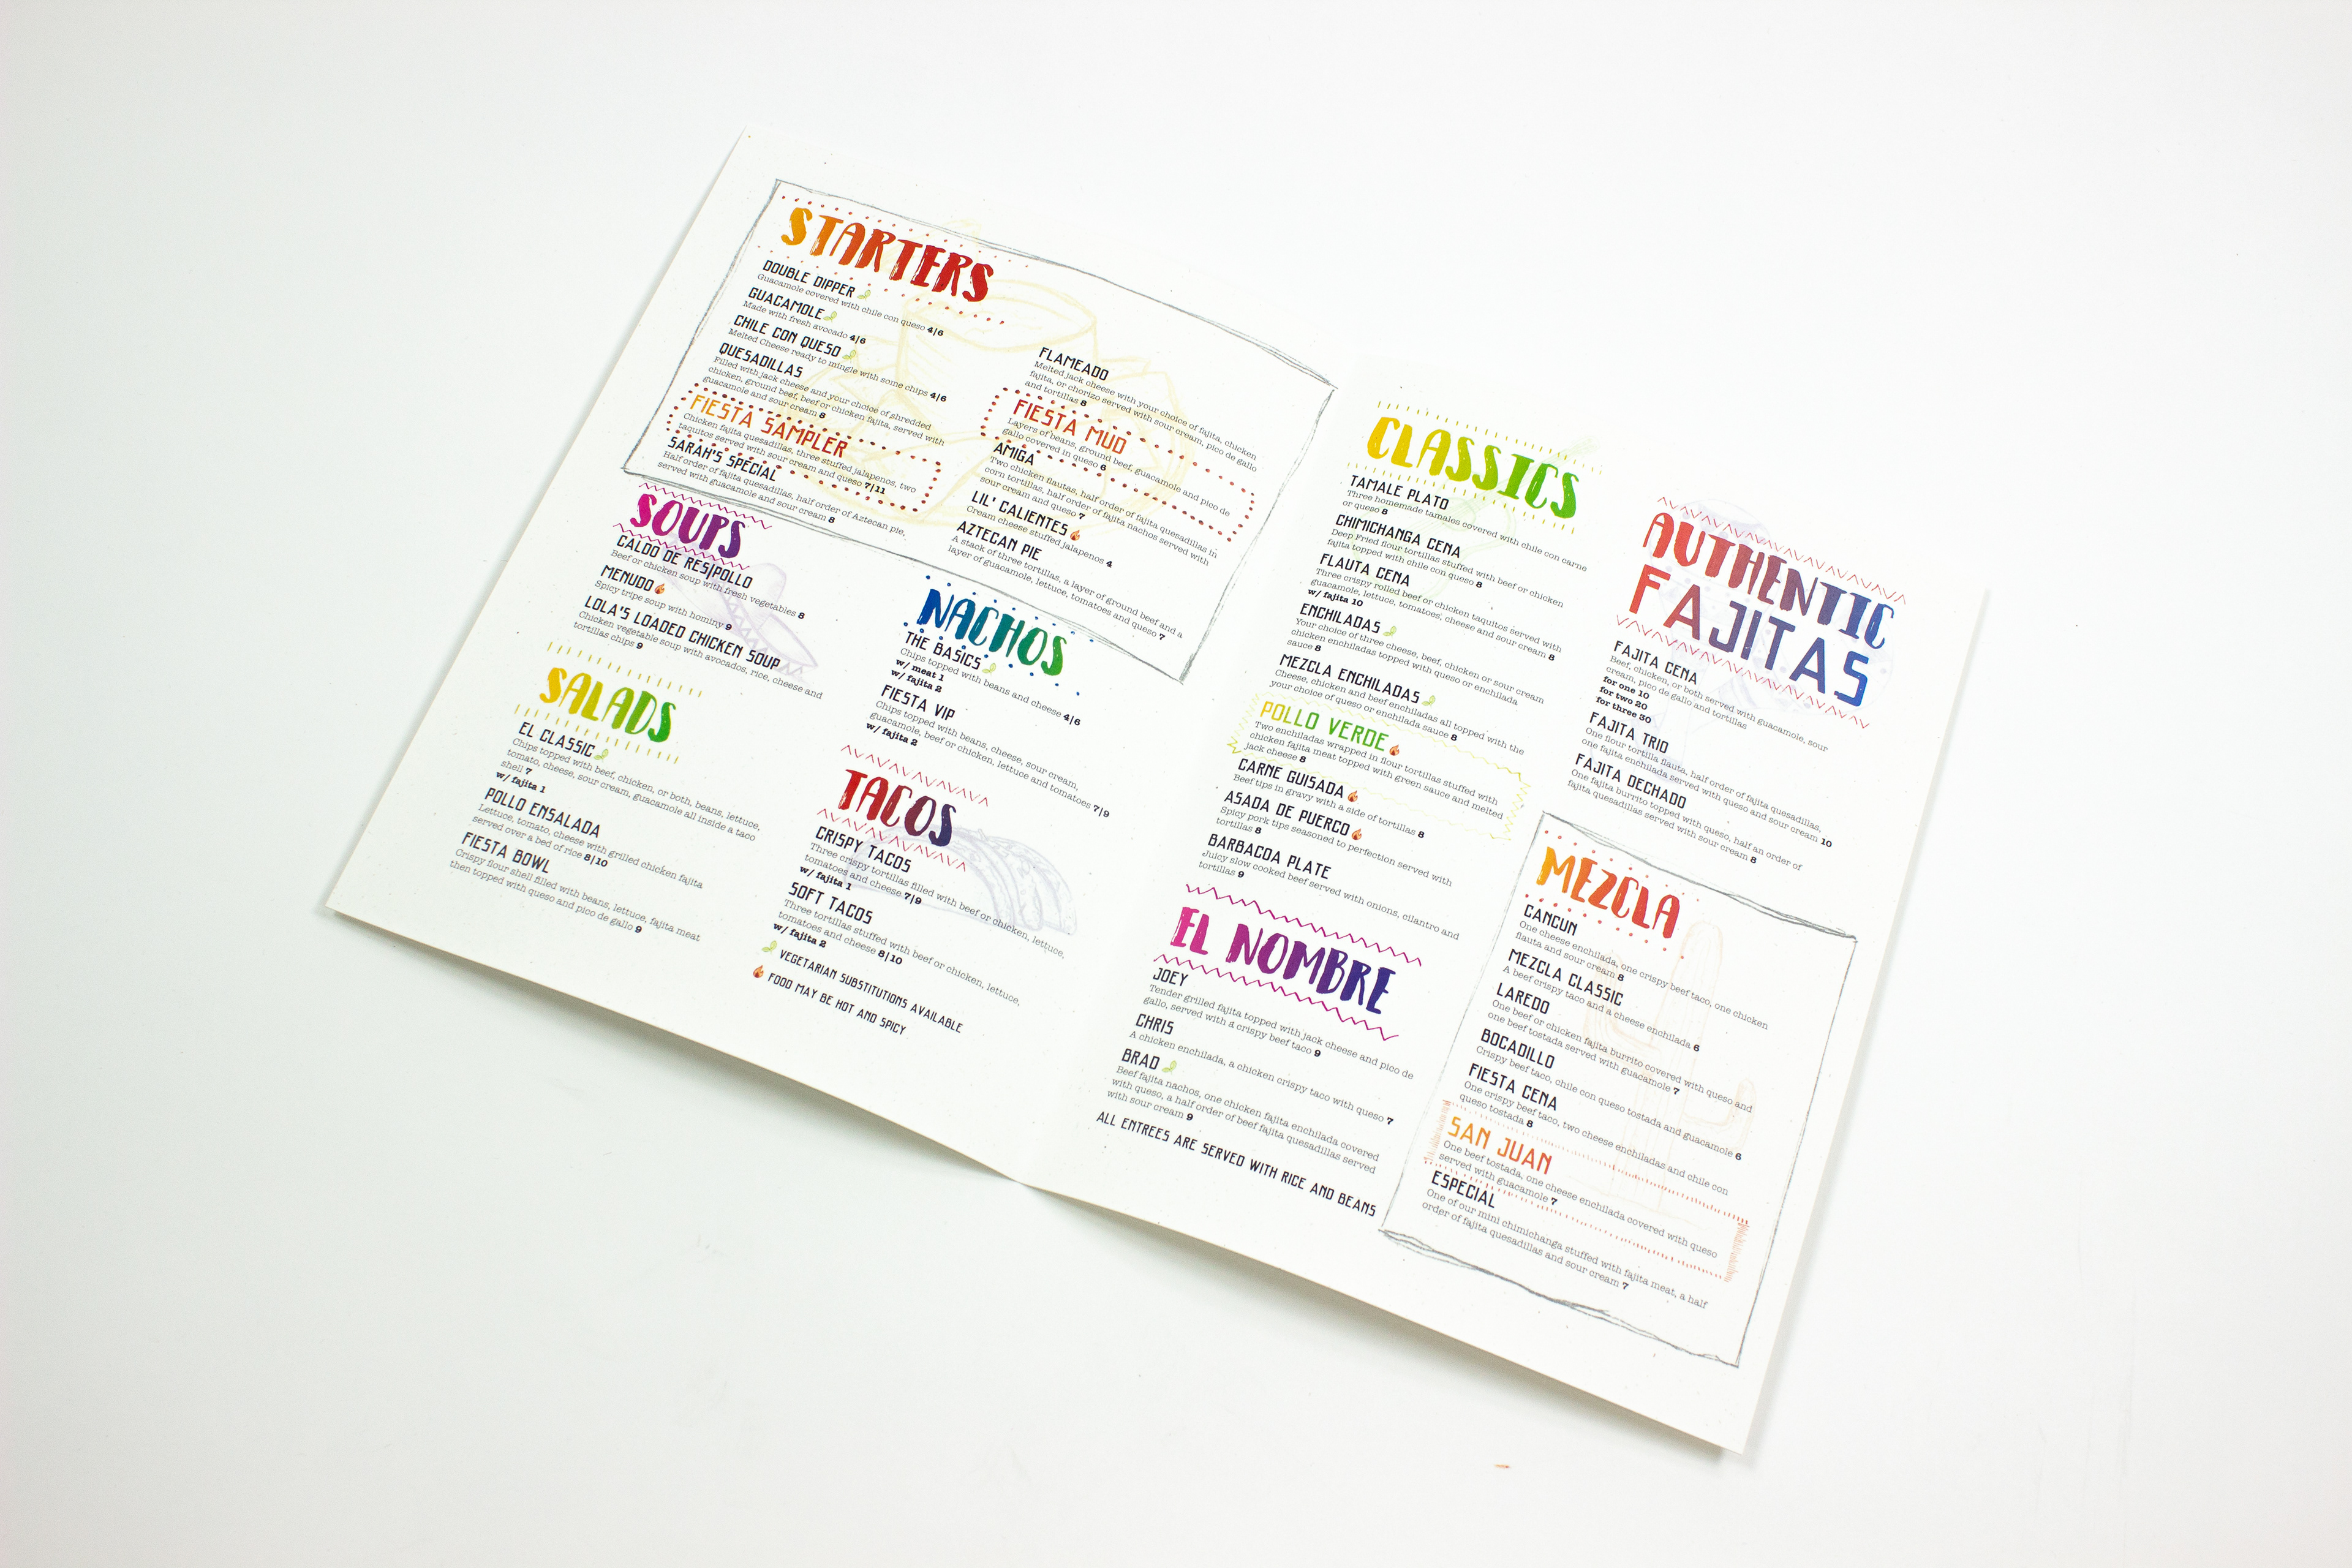 STARTERS
DOUBLE DIPPER
Guacamole covered with chile con queso 4|6
GUACAMOLE
Made with fresh avocado 4|6
CHILE CON QUESO
Melted Cheese ready to mingle with some chips 4|6
QUESADILLAS
Filled with jack cheese and your choice of shredded
chicken, ground beef, beef or chicken fajita, served with
guacamole and sour cream 8
FIESTA SAMPLER
Chicken fajita quesadillas, three stuffed jalapenos, two
taquitos served with sour cream and queso 7|11
SARAH'S SPECIAL
Half order of fajita quesadillas, half order of Aztecan pie,
served with guacamole and sour cream 8
FLAMEADO
Melted jack cheese with your choice of fajita, chicken
fajita, or chorizo served with sour cream, pico de gallo
and tortillas 8
FIESTA MUD
Layers of beans, ground beef, guacamole and pico de
gallo covered in queso 6
AMIGA
Two chicken flautas, half order of fajita quesadillas in
corn tortillas, half order of fajita nachos served with
sour cream and queso 7
LIL' CALIENTES
Cream cheese stuffed jalapenos 4
AZTECAN PIE
A stack of three tortillas, a layer of ground beef and a
layer of guacamole, lettuce, tomatoes and queso 7
SOUPS
CALDO DE RES|POLLO
Beef or chicken soup with fresh vegetables 8
MENUDO
Spicy tripe soup with hominy 9
LOLA'S LOADED CHICKEN SOUP
Chicken vegetable soup with avocados, rice, cheese and
tortillas chips 9
SALADS
EL CLASSIC
Chips topped with beef, chicken, or both, beans, lettuce,
tomato, cheese, sour cream, guacamole all inside a taco
shell 7
w/ fajita 1
POLLO ENSALADA
Lettuce, tomato, cheese with grilled chicken fajita
served over a bed of rice 8|10
FIESTA BOWL
Crispy flour shell filled with beans, lettuce, fajita meat
then topped with queso and pico de gallo 9
NACHOS
THE BASICS
Chips topped with beans and cheese 4|6
w/ meat 1
w/ fajita 2
FIESTA VIP
Chips topped with beans, cheese, sour cream,
guacamole, beef or chicken, lettuce and tomatoes 7|9
w/ fajita 2
TACOS
CRISPY TACOS
Three crispy tortillas filled with beef or chicken, lettuce,
tomatoes and cheese 7|9
w/ fajita 1
SOFT TACOS
Three tortillas stuffed with beef or chicken, lettuce,
tomatoes and cheese 8|10
w/ fajita 2
VEGETARIAN SUBSTITUTIONS AVAILABLE
FOOD MAY BE HOT AND SPICY
CLASSICS
TAMALE PLATO
Three homemade tamales covered with chile con carne
or queso 8
CHIMICHANGA CENA
Deep Fried flour tortillas stuffed with beef or chicken
fajita topped with chile con queso 8
FLAUTA CENA
Three crispy rolled beef or chicken taquitos served with
guacamole, lettuce, tomatoes, cheese and sour cream 8
w/ fajita 10
ENCHILADAS
Your choice of three cheese, beef, chicken or sour cream
chicken enchiladas topped with queso or enchilada
sauce 8
MEZCLA ENCHILADAS
Cheese, chicken and beef enchiladas all topped with the
your choice of queso or enchilada sauce 8
POLLO VERDE
Two enchiladas wrapped in flour tortillas stuffed with
chicken fajita meat topped with green sauce and melted
jack cheese 8
CARNE GUISADA
Beef tips in gravy with a side of tortillas 8
ASADA DE PUERCO
Spicy pork tips seasoned to perfection served with
tortillas 8
BARBACOA PLATE
Juicy slow cooked beef served with onions, cilantro and
tortillas 9
EL NOMBRE
JOEY
Tender grilled fajita topped with jack cheese and pico de
gallo, served with a crispy beef taco 9
CHRIS
A chicken enchilada, a chicken crispy taco with queso 7
BRAD
Beef fajita nachos, one chicken fajita enchilada covered
with queso, a half order of beef fajita quesadillas served
with sour cream 9
ALL ENTREES ARE SERVED WITH RICE AND BEANS
AUTHENTIC
FAJITAS
FAJITA CENA
Beef, chicken, or both served with guacamole, sour
cream, pico de gallo and tortillas
for one 10
for two 20
for three 30
FAJITA TRIO
One flour tortilla flauta, half order of fajita quesadillas,
one fajita enchilada served with queso and sour cream 10
FAJITA DECHADO
One fajita burrito topped with queso, half an order of
fajita quesadillas served with sour cream 8
MEZCLA
CANCUN
One cheese enchilada, one crispy beef taco, one chicken
flauta and sour cream 8
MEZCLA CLASSIC
A beef crispy taco and a cheese enchilada 6
LAREDO
One beef or chicken fajita burrito covered with queso and
one beef tostada served with guacamole 7
BOCADILLO
Crispy beef taco, chile con queso tostada and guacamole 6
FIESTA CENA
One crispy beef taco, two cheese enchiladas and chile con
queso tostada 8
SAN JUAN
One beef tostada, one cheese enchilada covered with queso
served with guacamole 7
ESPECIAL
One of our mini chimichanga stuffed with fajita meat, a half
order of fajita quesadillas and sour cream 7